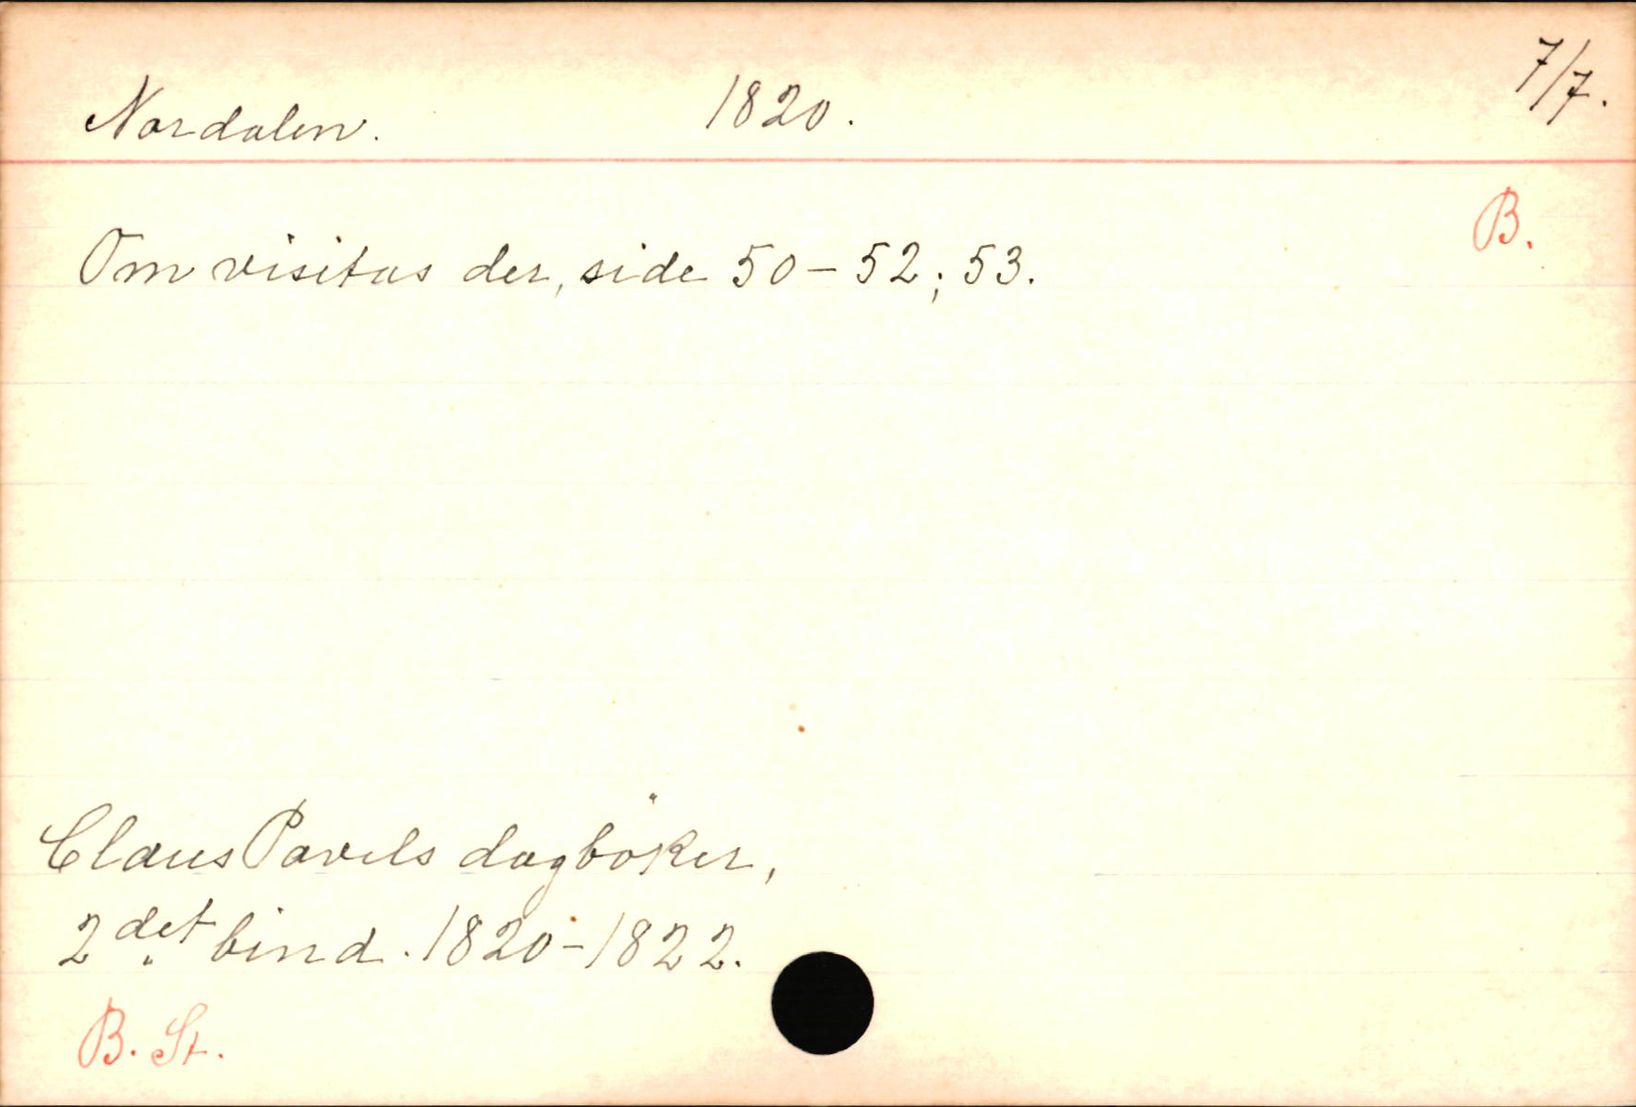 Nordalen. 1820. 7/7.
B.
Om visitas der, side 50-52; 53.
Claus Pavels dagböker,
2det bind. 1820-1822.
B. St.